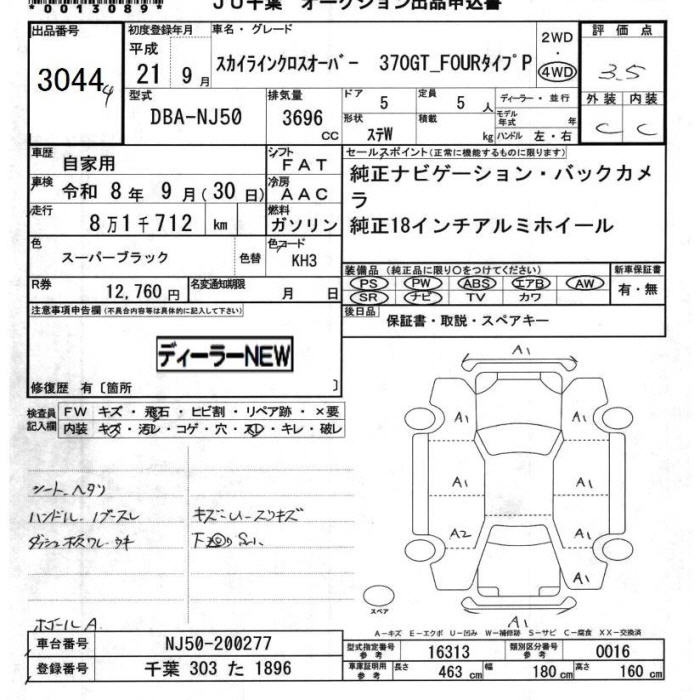 *0013089*
JU千葉 オークション出品申込書
出品番号 初度登録年月 車名・グレード 2WD・4WD 評価点
3044 平成21 9月 スカイラインクロスオーバー 370GT_FOURタイプP 3.5
型式 排気量 ドア 5 定員 5人 ディーラー・並行 外装 内装
DBA-NJ50 3696cc 形状 ステW 積載 kg モデル年式 年 ハンドル 左・右 C C
車歴 自家用 シフト FAT セールスポイント(正常に機能するものに限ります)
車検 令和8年9月(30日) 冷房 AAC 純正ナビゲーション・バックカメ
ラ
走行 8万1千712 km 燃料 ガソリン 純正18インチアルミホイール
色 スーパーブラック 色替 色コード KH3
装備品(純正品に限り○をつけてください) 新車保証書
PS PW ABS エアB AW 有・無
SR ナビ TV カワ
R券 12,760円 名変通知期限 月 日
後日品 保証書・取説・スペアキー
注意事項申告欄(不具合内容等は具体的に記入して下さい)
ディーラーNEW
修復歴 有〔箇所 〕
検査員記入欄 FW キズ・飛石・ヒビ割・リペア跡・×要
内装 キズ・汚レ・コゲ・穴・スレ・キレ・破レ
シートヘタリ
ハンドル
キズ
ホイールA
A1
A1 A1
A1 A1 A1
A2 A1
A1
A1
スペア
A-キズ E-エクボ U-凹み W-補修跡 S-サビ C-腐食 XX-交換済
車台番号 NJ50-200277 型式指定番号 参考 16313 類別区分番号 参考 0016
登録番号 千葉 303 た 1896 車庫証明用 参考 長さ 463 cm 幅 180 cm 高さ 160 cm